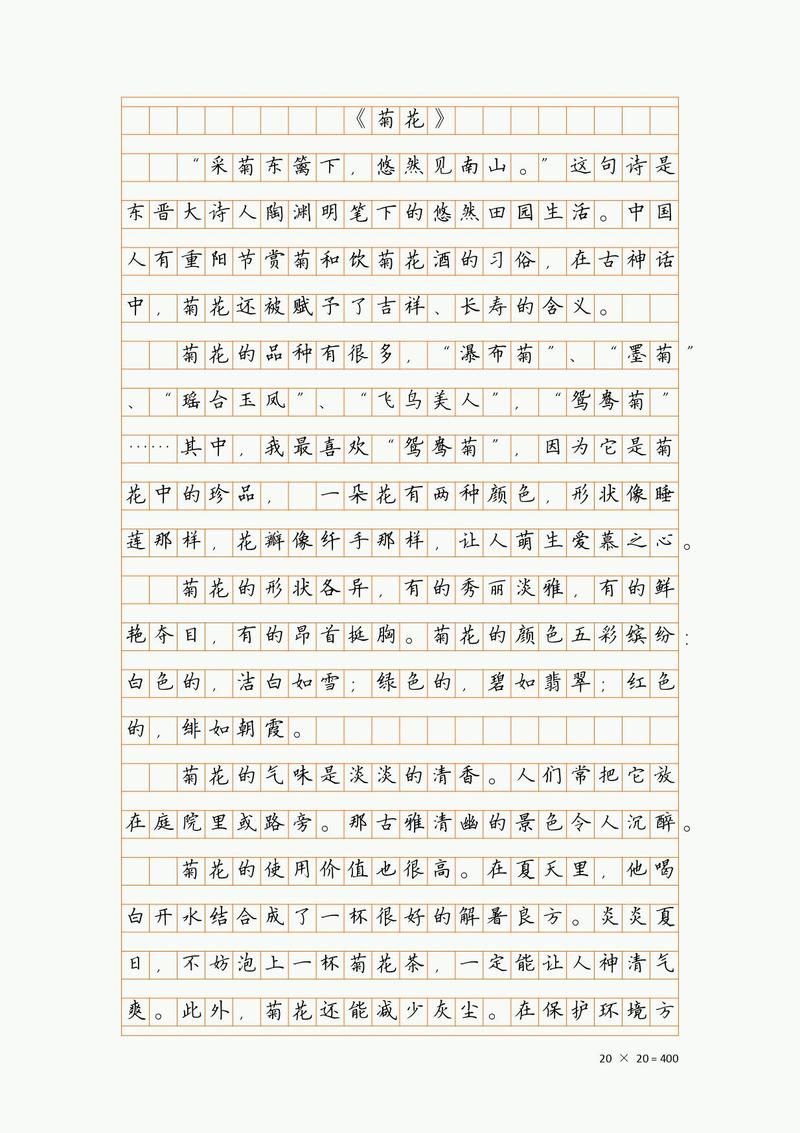 《菊花》
“采菊东篱下，悠然见南山。”这句诗是
东晋大诗人陶渊明笔下的悠然田园生活。中国
人有重阳节赏菊和饮菊花酒的习俗，在古神话
中，菊花还被赋予了吉祥、长寿的含义。
菊花的品种有很多，“瀑布菊”、“墨菊”
、“瑶台玉凤”、“飞鸟美人”，“鸳鸯菊”
……其中，我最喜欢“鸳鸯菊”，因为它是菊
花中的珍品， 一朵花有两种颜色，形状像睡
莲那样，花瓣像纤手那样，让人萌生爱慕之心。
菊花的形状各异，有的秀丽淡雅，有的鲜
艳夺目，有的昂首挺胸。菊花的颜色五彩缤纷：
白色的，洁白如雪；绿色的，碧如翡翠；红色
的，绯如朝霞。
菊花的气味是淡淡的清香。人们常把它放
在庭院里或路旁。那古雅清幽的景色令人沉醉。
菊花的使用价值也很高。在夏天里，他喝
白开水结合成了一杯很好的解暑良方。炎炎夏
日，不妨泡上一杯菊花茶，一定能让人神清气
爽。此外，菊花还能减少灰尘。在保护环境方
20 × 20 = 400